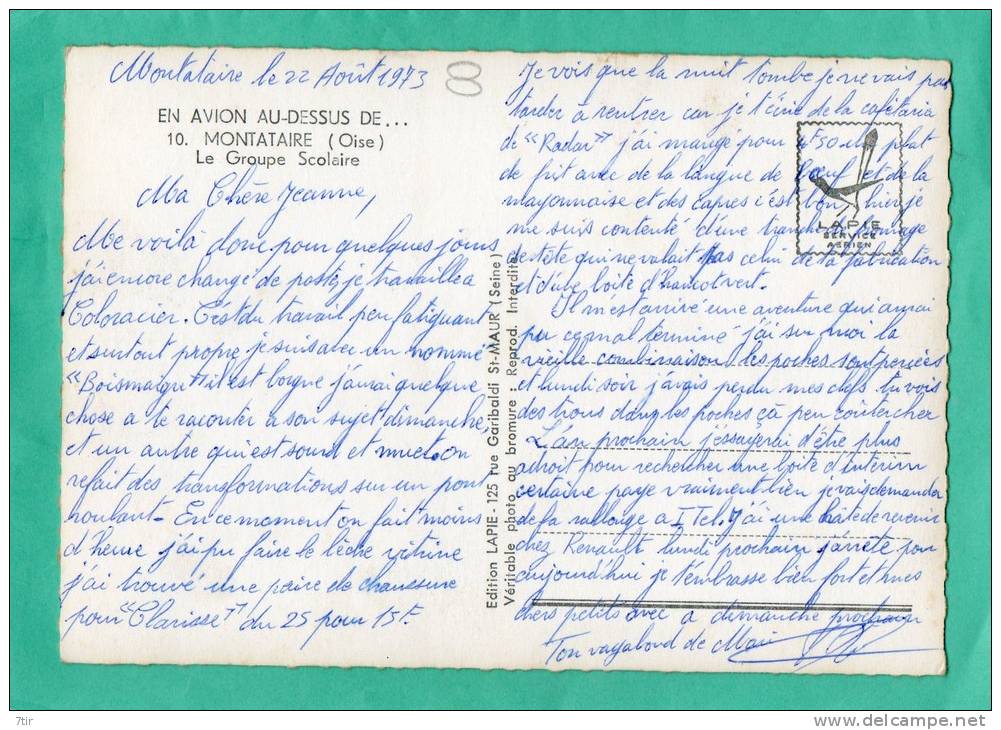 Montataire le 22 Août 1973
EN AVION AU-DESSUS DE...
10. MONTATAIRE (Oise)
Le Groupe Scolaire
Ma Chère Jeanne,
Me voilà donc pour quelques jours
j'ai encore changé de poste, je travaille a
Coloracier. C'est du travail peu fatiguant
et surtout propre, je suis avec un nommé
"Boismaigre" il est borgne j'aurai quelque
chose a te raconter a son sujet dimanche,
et un autre qui est sourd et muet. on
refait des transformations sur un pont
roulant. En ce moment on fait moins
d'heure j'ai pu faire le lèche vitrine
j'ai trouvé une paire de chaussure
pour "Clarisse" du 25 pour 15F.
Edition LAPIE - 125 rue Garibaldi St-MAUR (Seine)
Véritable photo au bromure : Reprod. Interdite
Je vois que la nuit tombe je ne vais pas
tarder a rentrer car je t'écrie de la cafétaria
de "Radar" j'ai mangé pour 4F50 un plat
de frit avec de la langue de bœuf et de la
mayonnaise et des capres c'est bon, hier je
me suis contenté d'une tranche de fromage
de tête qui ne valait pas celui de ta fabrication
et d'une boite d'haricot vert.
LAPIE
SERVICE
AERIEN
Il m'est arrivé une aventure qui aurai
pu ce mal terminé j'ai sur moi la
vieille combinaison les poches sont percées
et lundi soir j'avais perdu mes clefs tu vois
des trous dans les poches ça peu couter cher
L'an prochain j'essayerai d'être plus
adroit pour rechercher une boite d'intérim
certaine paye vraiment bien je vais demander
de la rallonge a ITel. J'ai une hâte de revenir
chez Renault lundi prochain j'arrête pour
aujourd'hui je t'embrasse bien fort et mes
chers petits avec a dimanche prochain
Ton vagabond de Mari
7tir
www.delcampe.net